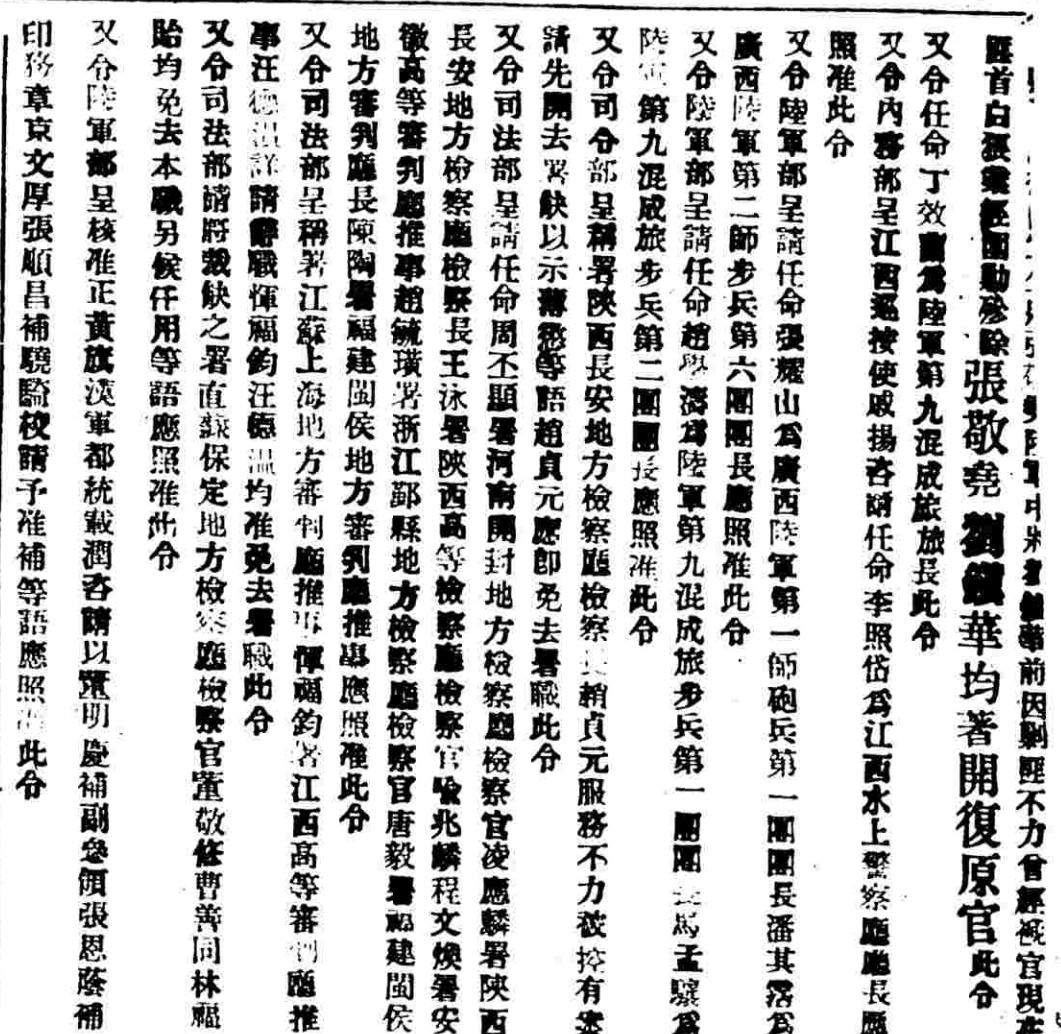 軍中將劉鎮華前因剿匪不力曾經褫官現在
匪首白狼業經團勦殄除張敬堯劉鎮華均著開復原官此令
又令任命丁效蘭爲陸軍第九混成旅旅長此令
又令內務部呈江西巡按使戚揚咨請任命李照岱爲江西水上警察廳廳長應
照准此令
又令陸軍部呈請任命張耀山爲廣西陸軍第一師砲兵第一團團長潘其霑爲
廣西陸軍第二師步兵第六團團長應照准此令
又令陸軍部呈請任命趙學濤爲陸軍第九混成旅步兵第一團團長馬孟驥爲
陸軍第九混成旅步兵第二團團長應照准此令
又令司令部呈稱署陝西長安地方檢察廳檢察長趙貞元服務不力被控有案
請先開去署缺以示薄懲等語趙貞元應即免去署職此令
又令司法部呈請任命周不顯署河南開封地方檢察廳檢察官凌應麟署陝西
長安地方檢察廳檢察長王泳署陝西高等檢察廳檢察官喻兆麟程文煥署安
徽高等審判廳推事趙毓璜署浙江鄞縣地方檢察廳檢察官唐毅署福建閩侯
地方審判廳長陳陶署福建閩侯地方審判廳推事應照准此令
又令司法部呈稱署江蘇上海地方審判廳推事惲福鈞署江西高等審判廳推
事汪德温詳請辭職惲福鈞汪德温均准免去署職此令
又令司法部請將裁缺之署直隸保定地方檢察廳檢察官董敬修曹善同林福
貽均免去本職另候任用等語應照准此令
又令陸軍部呈核准正黃旗漢軍都統載潤咨請以董明慶補副參領張恩蔭補
印務章京文厚張順昌補驍騎校請予准補等語應照准此令